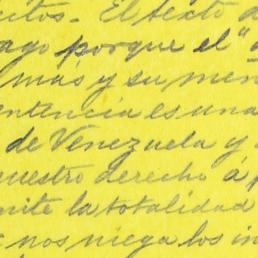 itos. El texto d
ago porque el "
más y su men
entencia es una
de Venezuela y
uestro derecho á p
mite la totalidad
nos niega los in